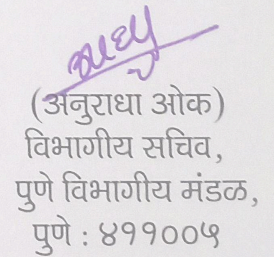 (अनुराधा ओक)
विभागीय सचिव,
पुणे विभागीय मंडळ,
पुणे : ४११००५